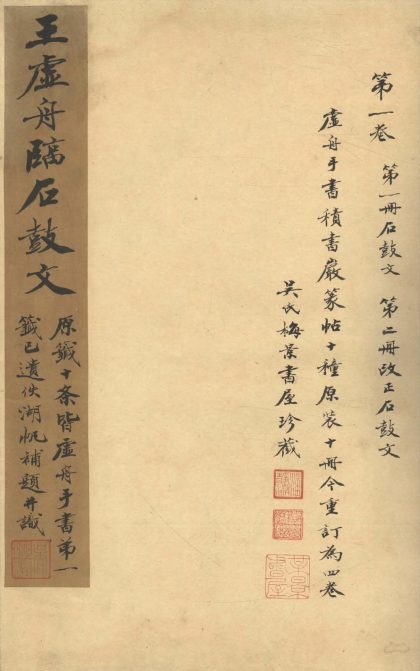 第一卷 第一冊石鼓文 第二冊改正石鼓文
虛舟手書積書巖篆帖十種原裝十冊今重訂為四卷
吳氏梅景書屋珍藏
王虛舟臨石鼓文
原籤十條皆虛舟手書第一
籤已遺佚湖帆補題并識
梅景
書屋